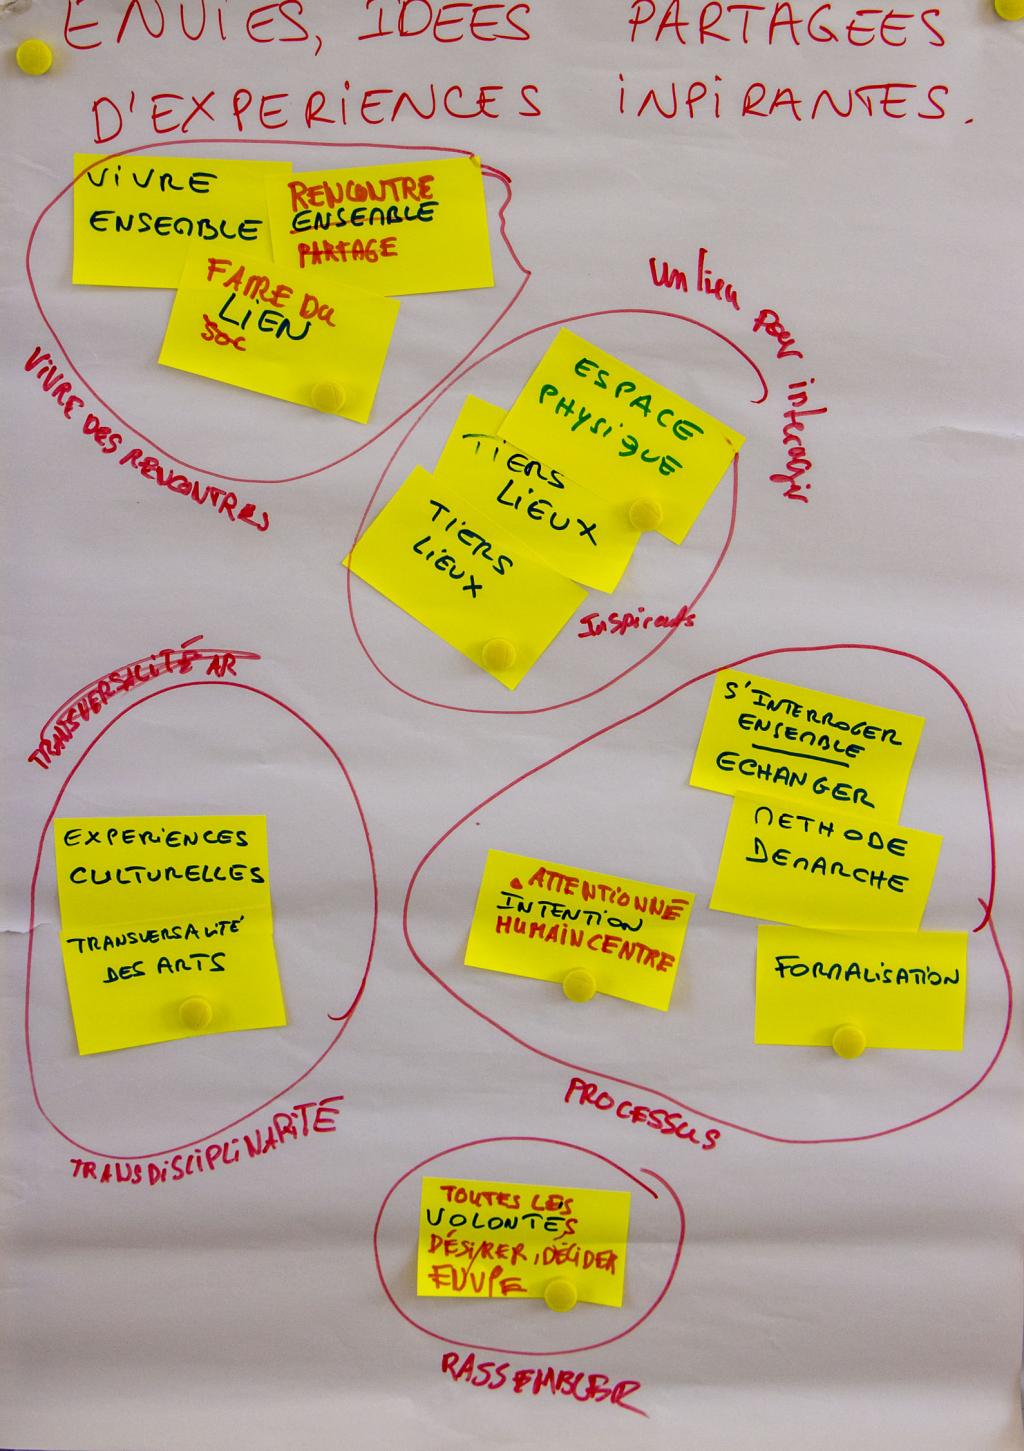 ENVIES, IDEES PARTAGEES
D'EXPERIENCES INPIRANTES.
VIVRE
ENSEMBLE
RENCONTRE
ENSEMBLE
PARTAGE
FAIRE DU
LIEN
SOC
VIVRE DES RENCONTRES
un lieu pour interagir
ESPACE
PHYSIQUE
TIERS
LIEUX
TIERS
LIEUX
Inspirants
TRANSVERSALITÉ AR
EXPERIENCES
CULTURELLES
TRANSVERSALITÉ
DES ARTS
TRANSDISCIPLINARITÉ
S'INTERROGER
ENSEMBLE
ECHANGER
METHODE
DEMARCHE
ATTENTIONNÉ
INTENTION
HUMAIN CENTRE
FORMALISATION
PROCESSUS
TOUTES LES
VOLONTÉS
DÉSIRER, DÉCIDER
RASSEMBLER